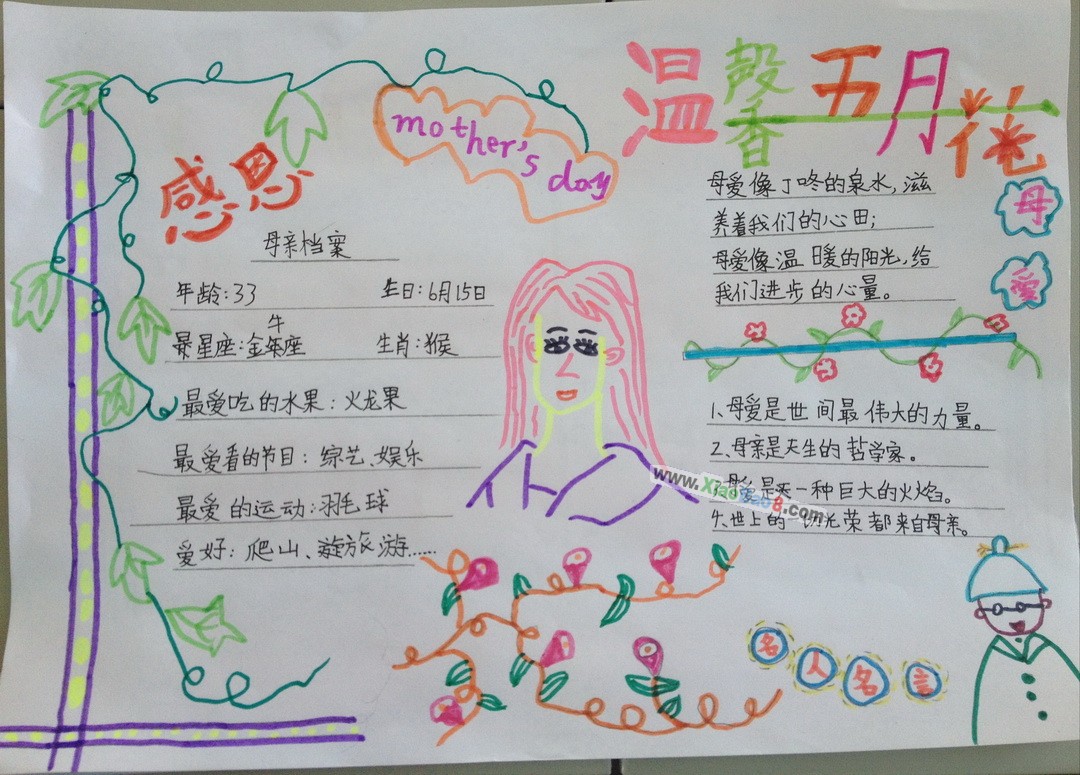 感恩
mother's day
母亲档案
年龄:33 生日:6月15日
星座:金牛座 生肖:猴
最爱吃的水果:火龙果
最爱看的节目:综艺、娱乐
最爱的运动:羽毛球
爱好:爬山、旅游……
温馨五月花
母爱像丁咚的泉水,滋
养着我们的心田;
母爱像温暖的阳光,给
我们进步的心量。
母爱
1、母爱是世间最伟大的力量。
2、母亲是天生的哲学家。
是一种巨大的火焰。
世上的光荣都来自母亲。
名人名言